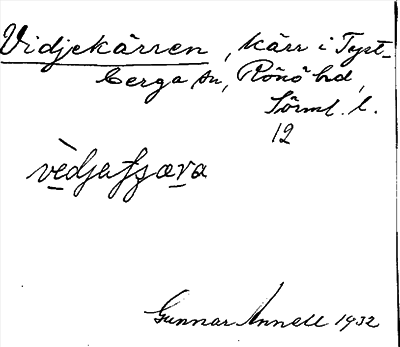 Vidjekärren, kärr i Tyst-
berga sn, Rönö hd,
Sörml. l.
12
Gunnar Annell 1932